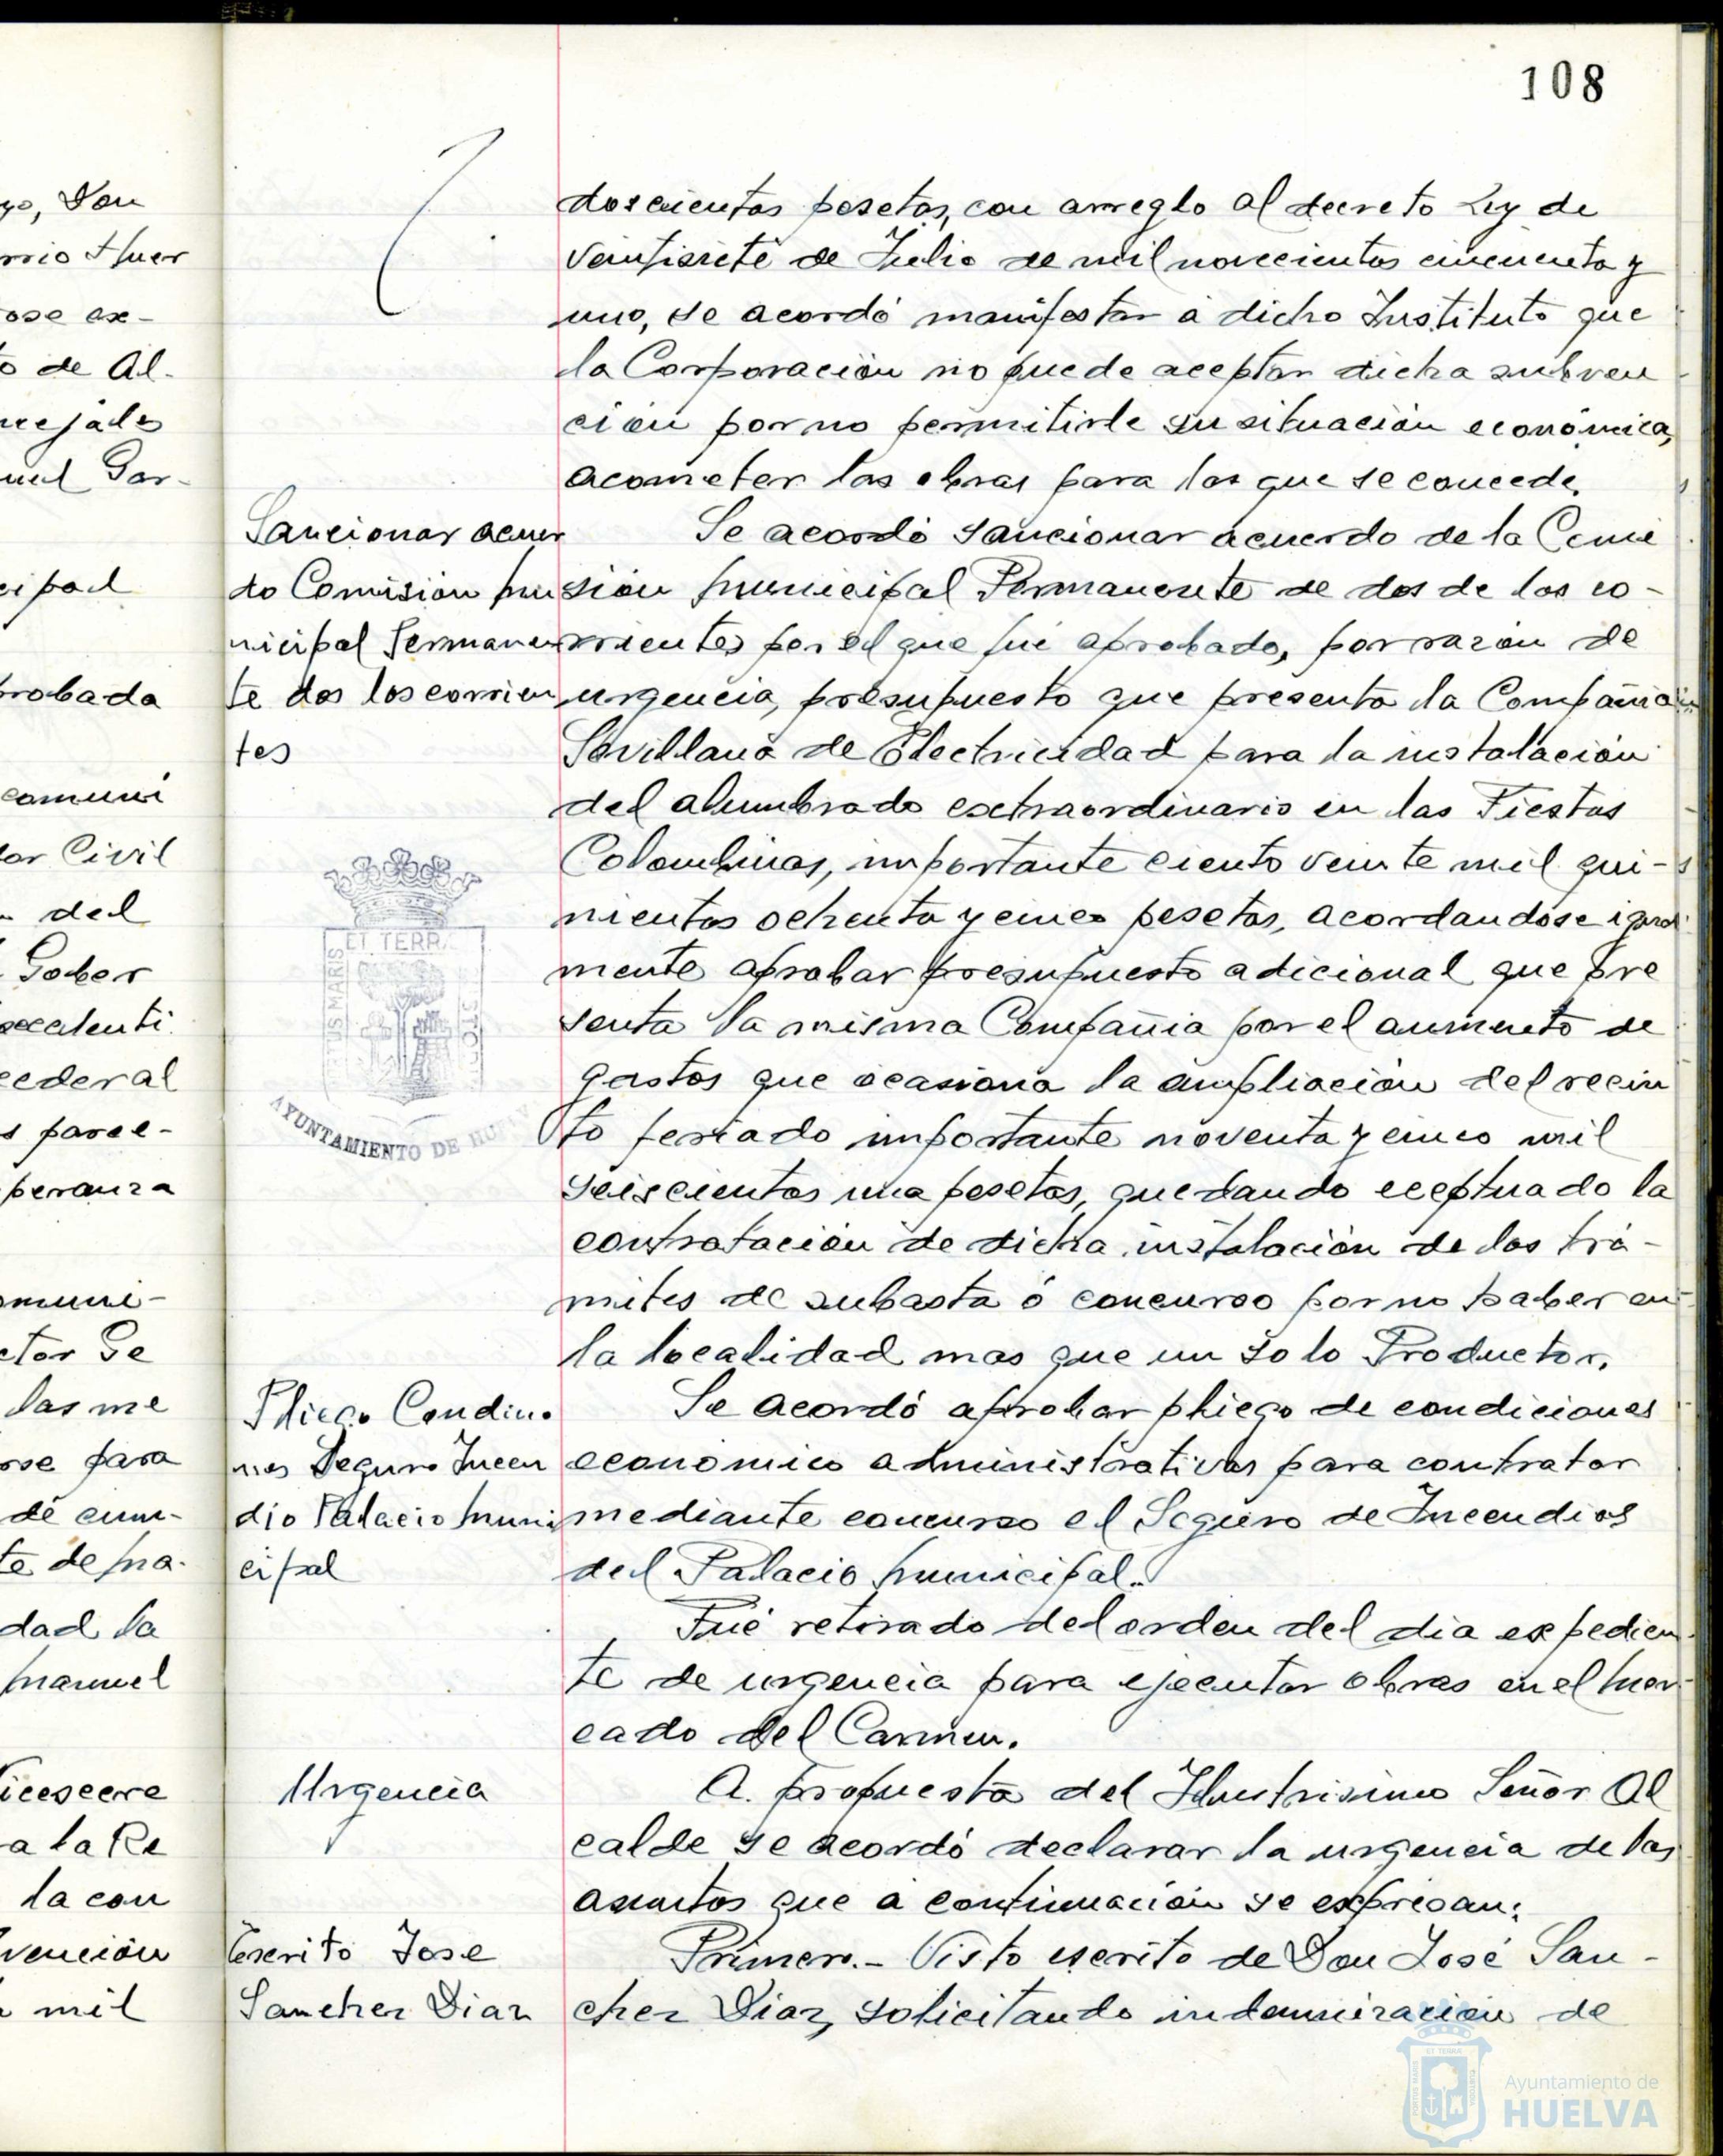 108
yo, Don
rrio Huer
ose ex-
o de Al-
ncejales
uel Gar-
cipal
probada
comuni
dor Civil
del
Gober
excelenti
ceder al
s parce-
peranza
omuni-
ctor Ge
las me
rse para
de cum-
te de Ma-
dad la
Manuel
Vicesecre
a la Re
la con
vención
mil
doscientas pesetas, con arreglo al decreto Ley de
veintisiete de Julio de mil novecientos cincuenta y
uno, se acordó manifestar a dicho Instituto que
la Corporación no puede aceptar dicha subven
ción por no permitirle su situación económica,
acometer las obras para las que se concede.
Sancionar acuer
do Comisión Mu
nicipal Permanen
te dos los corrien
tes
Se acordó sancionar acuerdo de la Comi
sión Municipal Permanente de dos de los co-
rrientes por el que fué aprobado, por razón de
urgencia, presupuesto que presenta la Compañia
Sevillana de Electricidad para la instalación
del alumbrado extraordinario en las Fiestas
Colombinas, importante ciento veinte mil qui-
nientas ochenta y cinco pesetas, acordandose igual
mente aprobar presupuesto adicional que pre
senta la misma Compañia por el aumento de
gastos que ocasiona la ampliación del recin
to feriado importante noventa y cinco mil
seiscientas una pesetas, quedando eceptuado la
contratación de dicha instalación de los trá-
mites de subasta ó concurso por no haber en
la localidad mas que un solo Productor.
ET TERRA
PORTUS MARIS
CUSTODIA
AYUNTAMIENTO DE HUELVA
Pliego Condicio
nes Seguro Incen
dio Palacio Muni
cipal
Se acordó aprobar pliego de condiciones
economico administrativas para contratar
mediante concurso el Seguro de Incendios
del Palacio Municipal.
Fué retirado del orden del dia expedien
te de urgencia para ejecutar obras en el Mer-
cado del Carmen.
Urgencia
A propuesta del Ilustrisimo Señor Al
calde se acordó declarar la urgencia de los
asuntos que a continuación se expresan:
Escrito Jose
Sanchez Diaz
Primero.- Visto escrito de Don José San-
chez Diaz, solicitando indemnización de
Ayuntamiento de
HUELVA